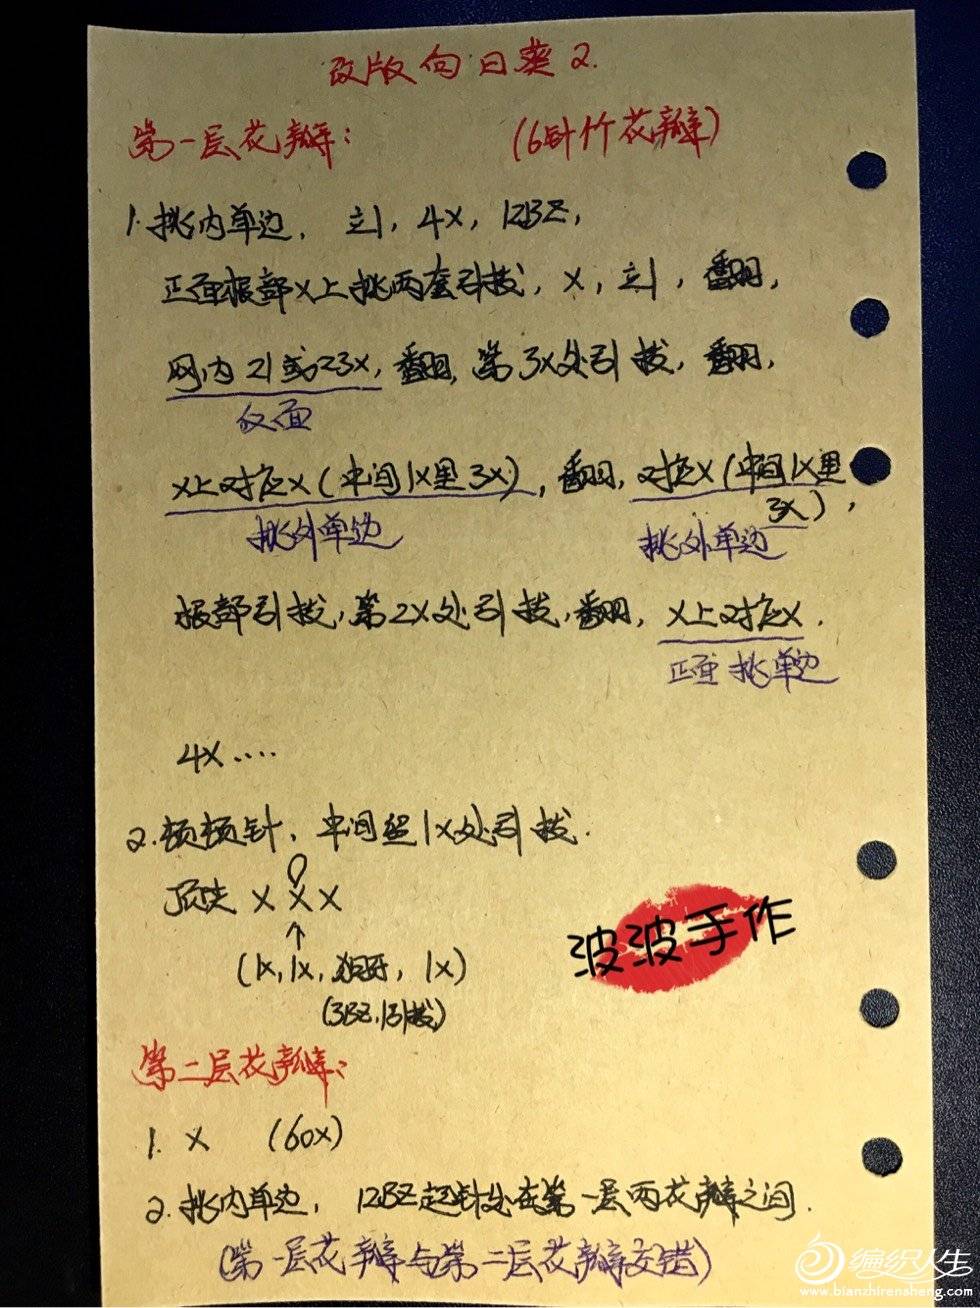 改版向日葵2.
第一层花瓣: (6针1个花瓣)
1. 挑内单边, 立1, 4X, 12BZ,
正面根部X上挑两套引拔, X, 立1, 翻,
网内21或23X, 翻, 第3X处引拔, 翻,
反面
X上对应X(中间1X里3X), 翻, 对应X(中间1X里
3X),
挑外单边 挑外单边
根部引拔, 第2X处引拔, 翻, X上对应X.
正面挑单边
4X....
2. 顿顿针, 中间组1X处引拔.
顶尖 X X X
(1X, 1X, 狗牙, 1X)
(3BZ, 1引拔)
波波手作
第二层花瓣:
1. X (60X)
2. 挑内单边, 12BZ起针处在第一层两花瓣之间.
(第一层花瓣与第二层花瓣交错)
编织人生
www.bianzhirensheng.com